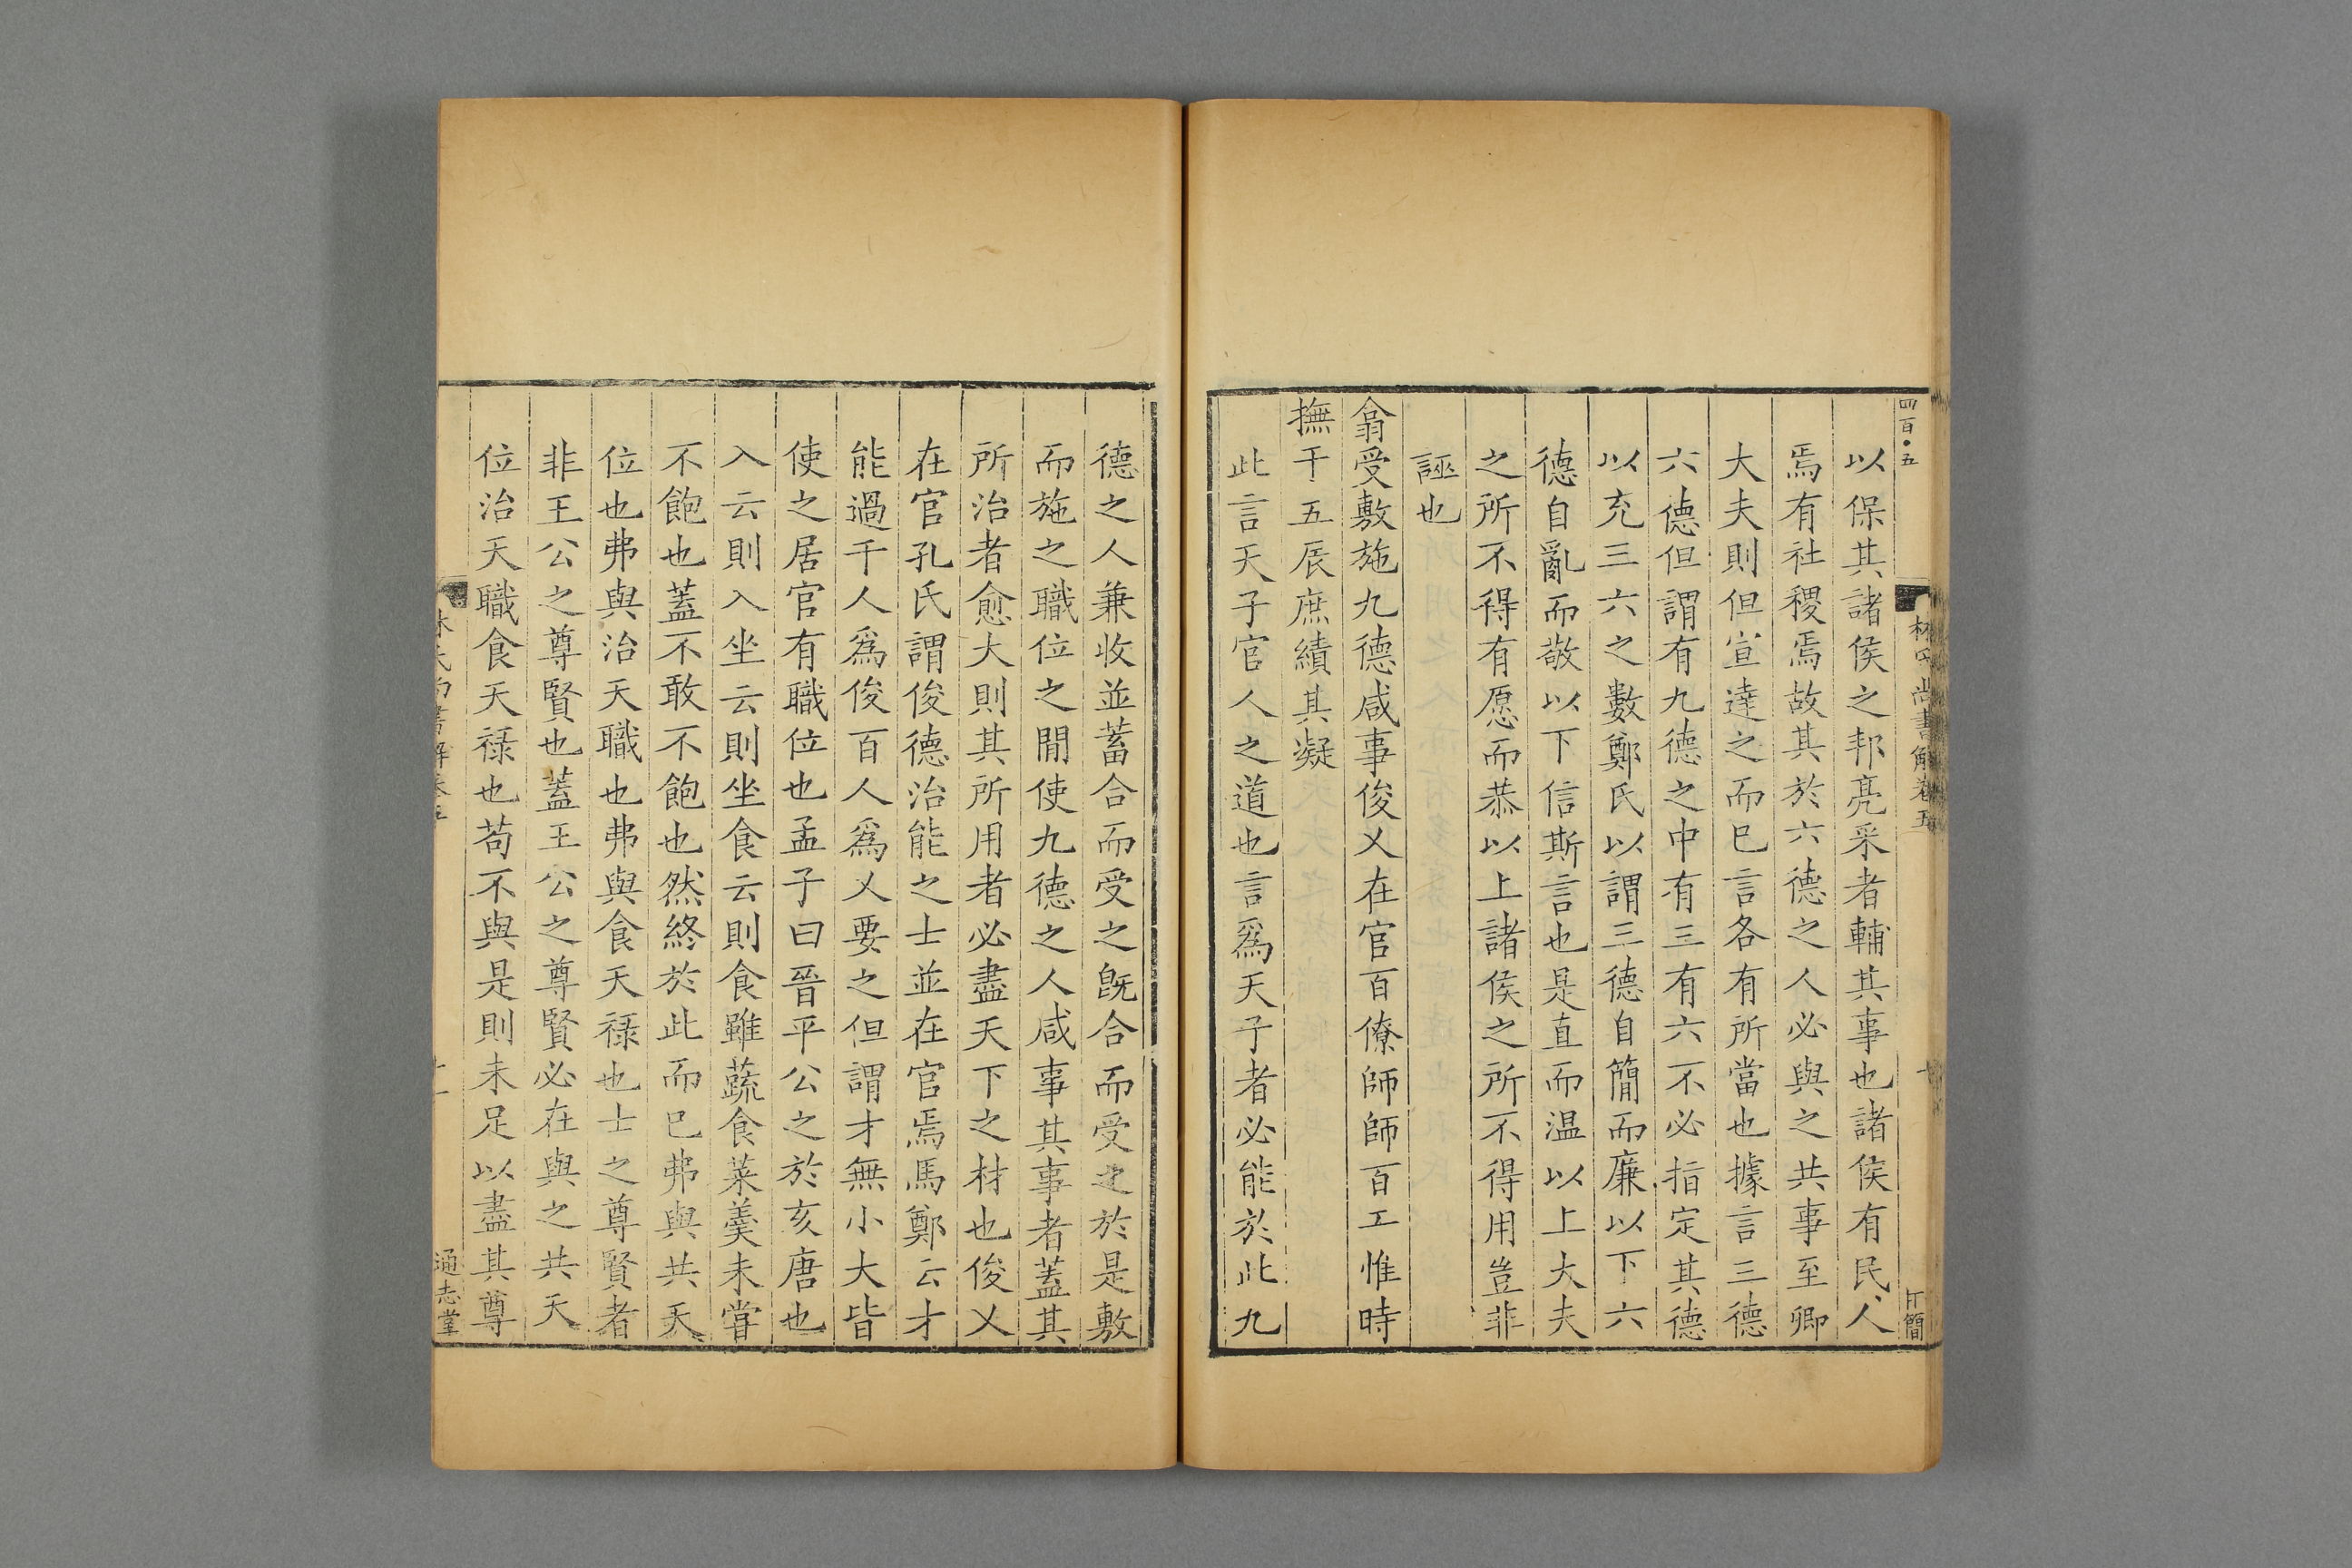 四百●五
林氏尚書解卷五
以保其諸侯之邦亮采者輔其事也諸侯有民人
焉有社稷焉故其於六德之人必與之共事至卿
大夫則但宣達之而已言各有所當也據言三德
六德但謂有九德之中有三有六不必指定其德
以充三六之數鄭氏以謂三德自簡而廉以下六
德自亂而敬以下信斯言也是直而温以上大夫
之所不得有愿而恭以上諸侯之所不得用豈非
誣也
翕受敷施九德咸事俊乂在官百僚師師百工惟時
撫于五辰庶績其凝
此言天子官人之道也言爲天子者必能於此九
德之人兼收並蓄合而受之旣合而受之於是敷
而施之職位之閒使九德之人咸事其事者蓋其
所治者愈大則其所用者必盡天下之材也俊乂
在官孔氏謂俊德治能之士並在官焉馬鄭云才
能過千人爲俊百人爲乂要之但謂才無小大皆
使之居官有職位也孟子曰晉平公之於亥唐也
入云則入坐云則坐食云則食雖蔬食菜羹未嘗
不飽也蓋不敢不飽也然終於此而已弗與共天
位也弗與治天職也弗與食天祿也士之尊賢者
非王公之尊賢也蓋王公之尊賢必在與之共天
位治天職食天祿也苟不與是則未足以盡其尊
林氏尚書解卷五
十一
通志堂